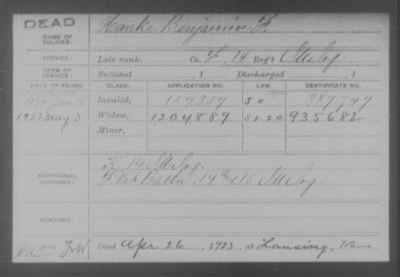 DEAD
NAME OF SOLDIER:
Hanks Benjamin F.
SERVICE:
Late rank, Co. F, 14 Reg't Ills Inf
TERM OF SERVICE:
Enlisted , 1 Discharged , 1
DATE OF FILING. CLASS. APPLICATION NO. LAW. CERTIFICATE NO.
Invalid, 387747
1923 May 3 Widow, 1204889 5-1-20 935682
Minor,
ADDITIONAL SERVICES:
K. 14 Ills Inf.
14 & 15 Ills Inf
REMARKS:
Died Apr 26, 1923, at Lansing, Kans